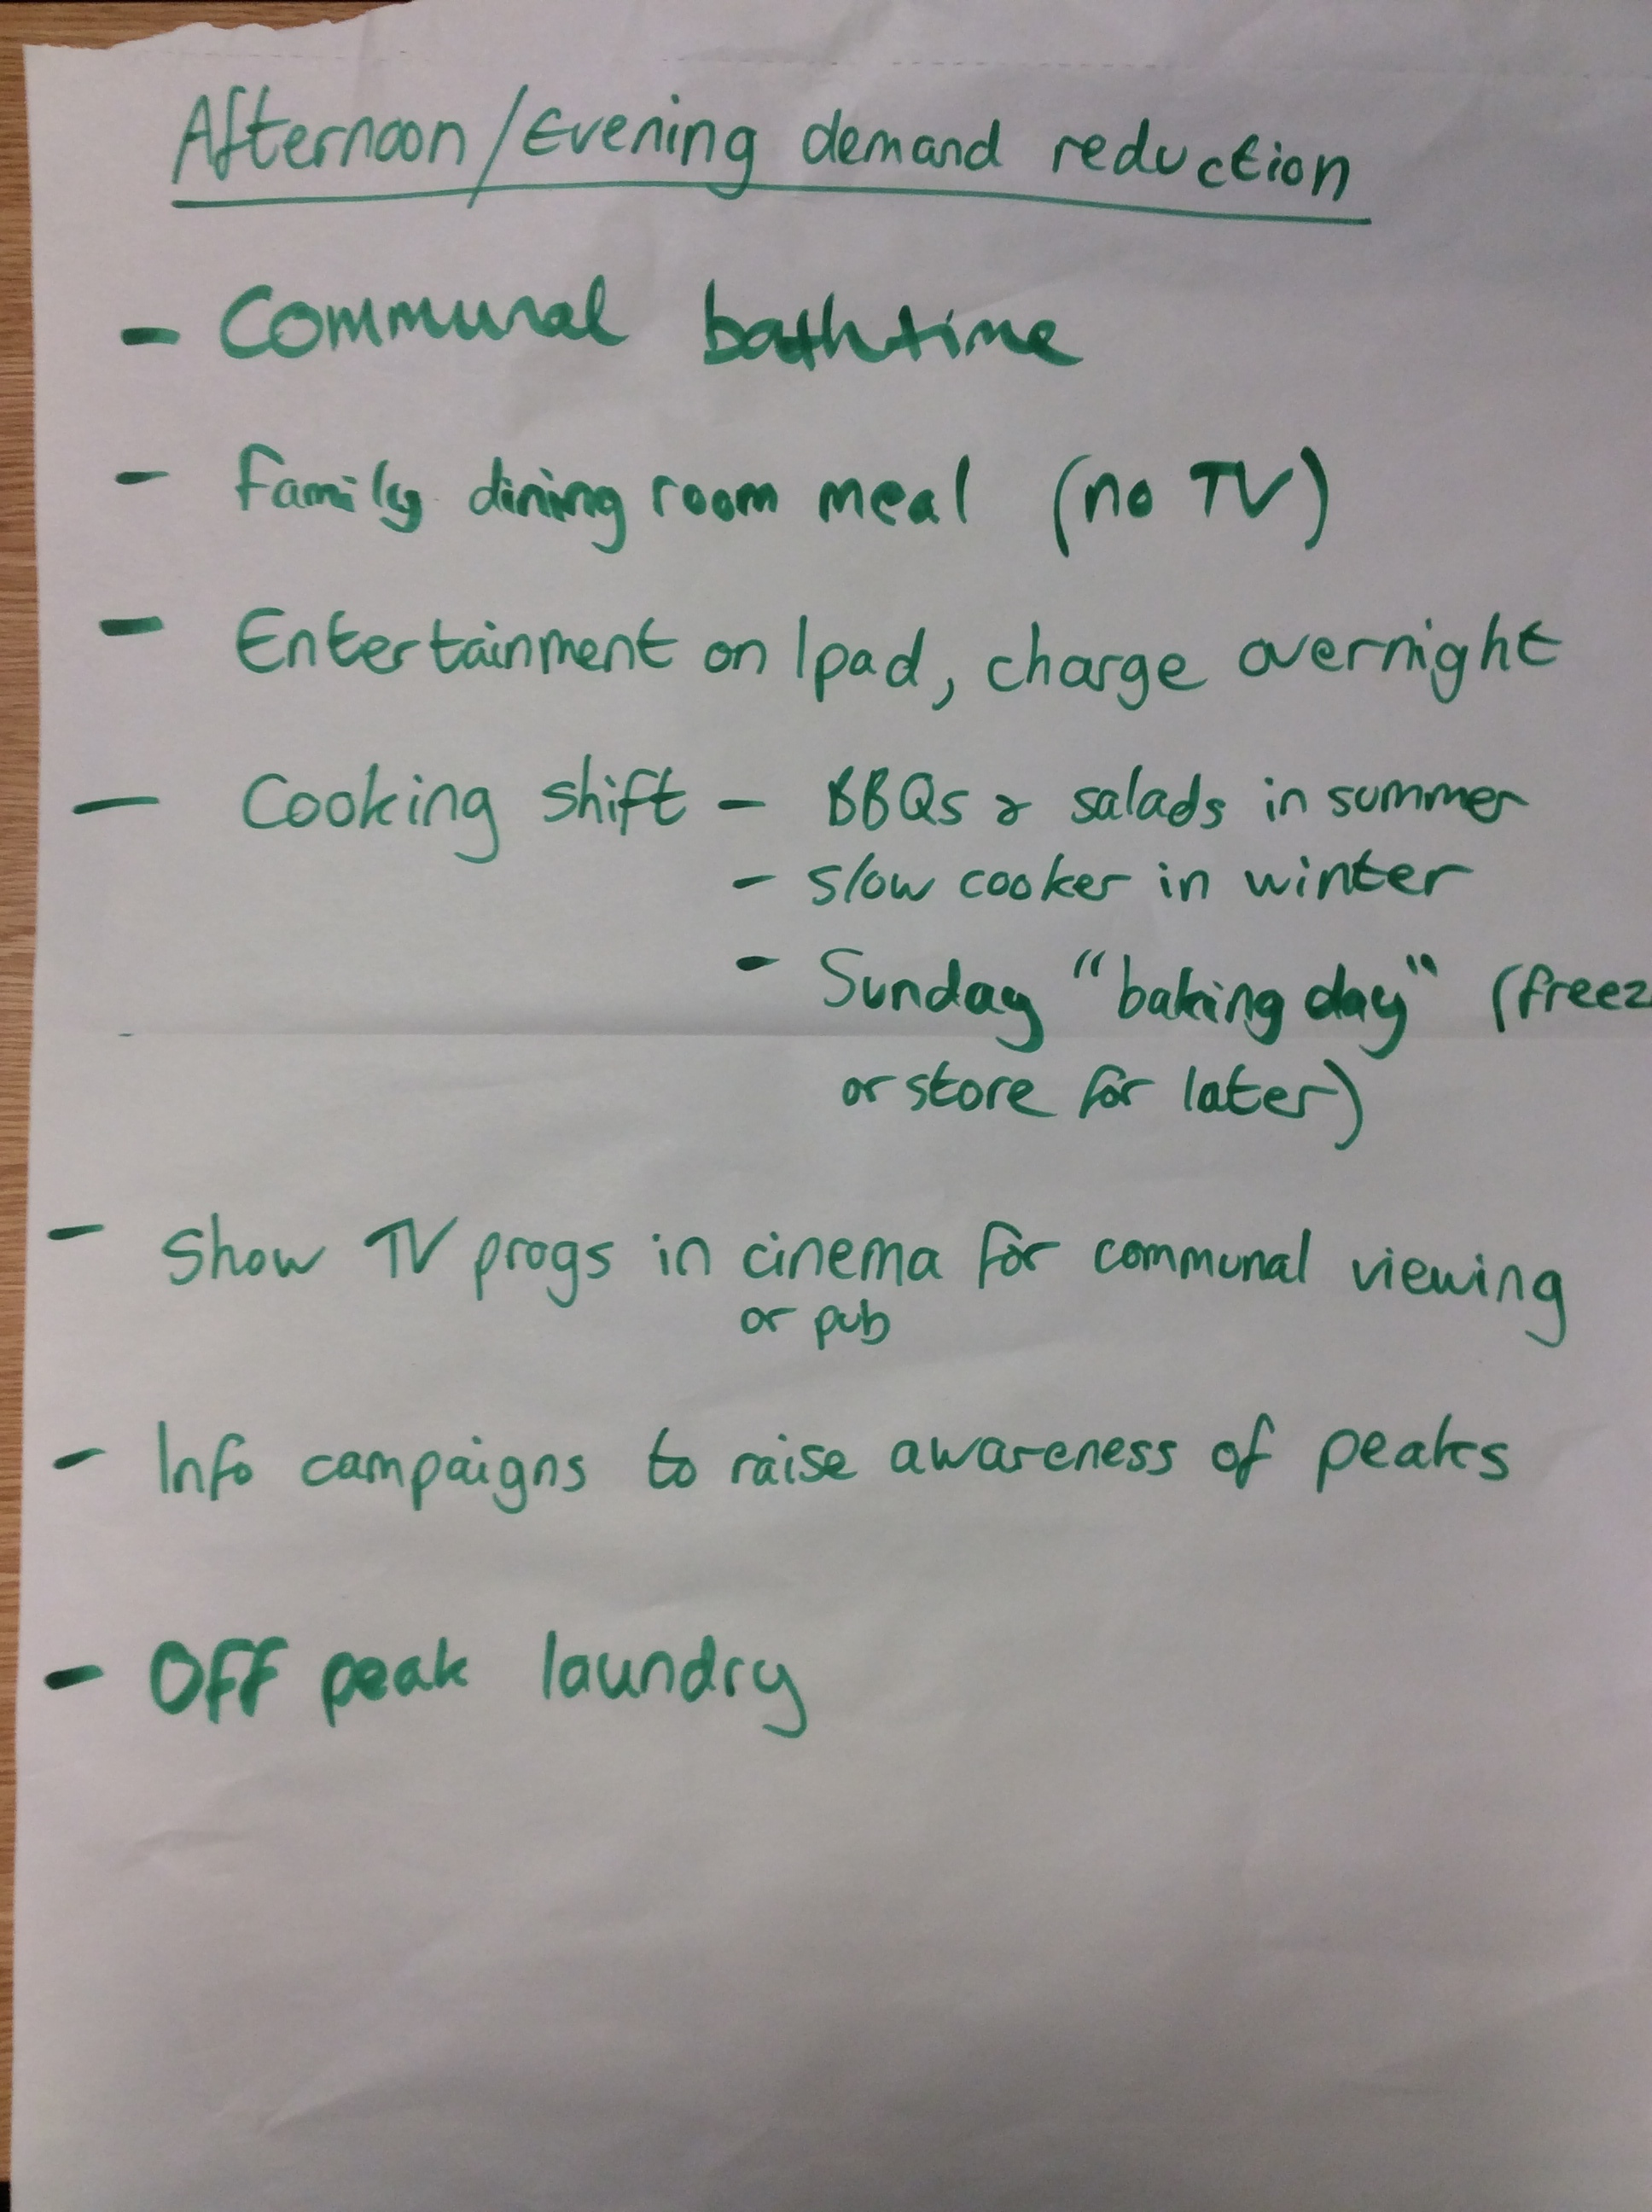 Afternoon/Evening demand reduction
- Communal bathtime
- Family dining room meal (no TV)
- Entertainment on Ipad, charge overnight
- Cooking shift - BBQs & salads in summer
- slow cooker in winter
- Sunday "baking day" (freez
or store for later)
- Show TV progs in cinema for communal viewing
or pub
- Info campaigns to raise awareness of peaks
- Off peak laundry